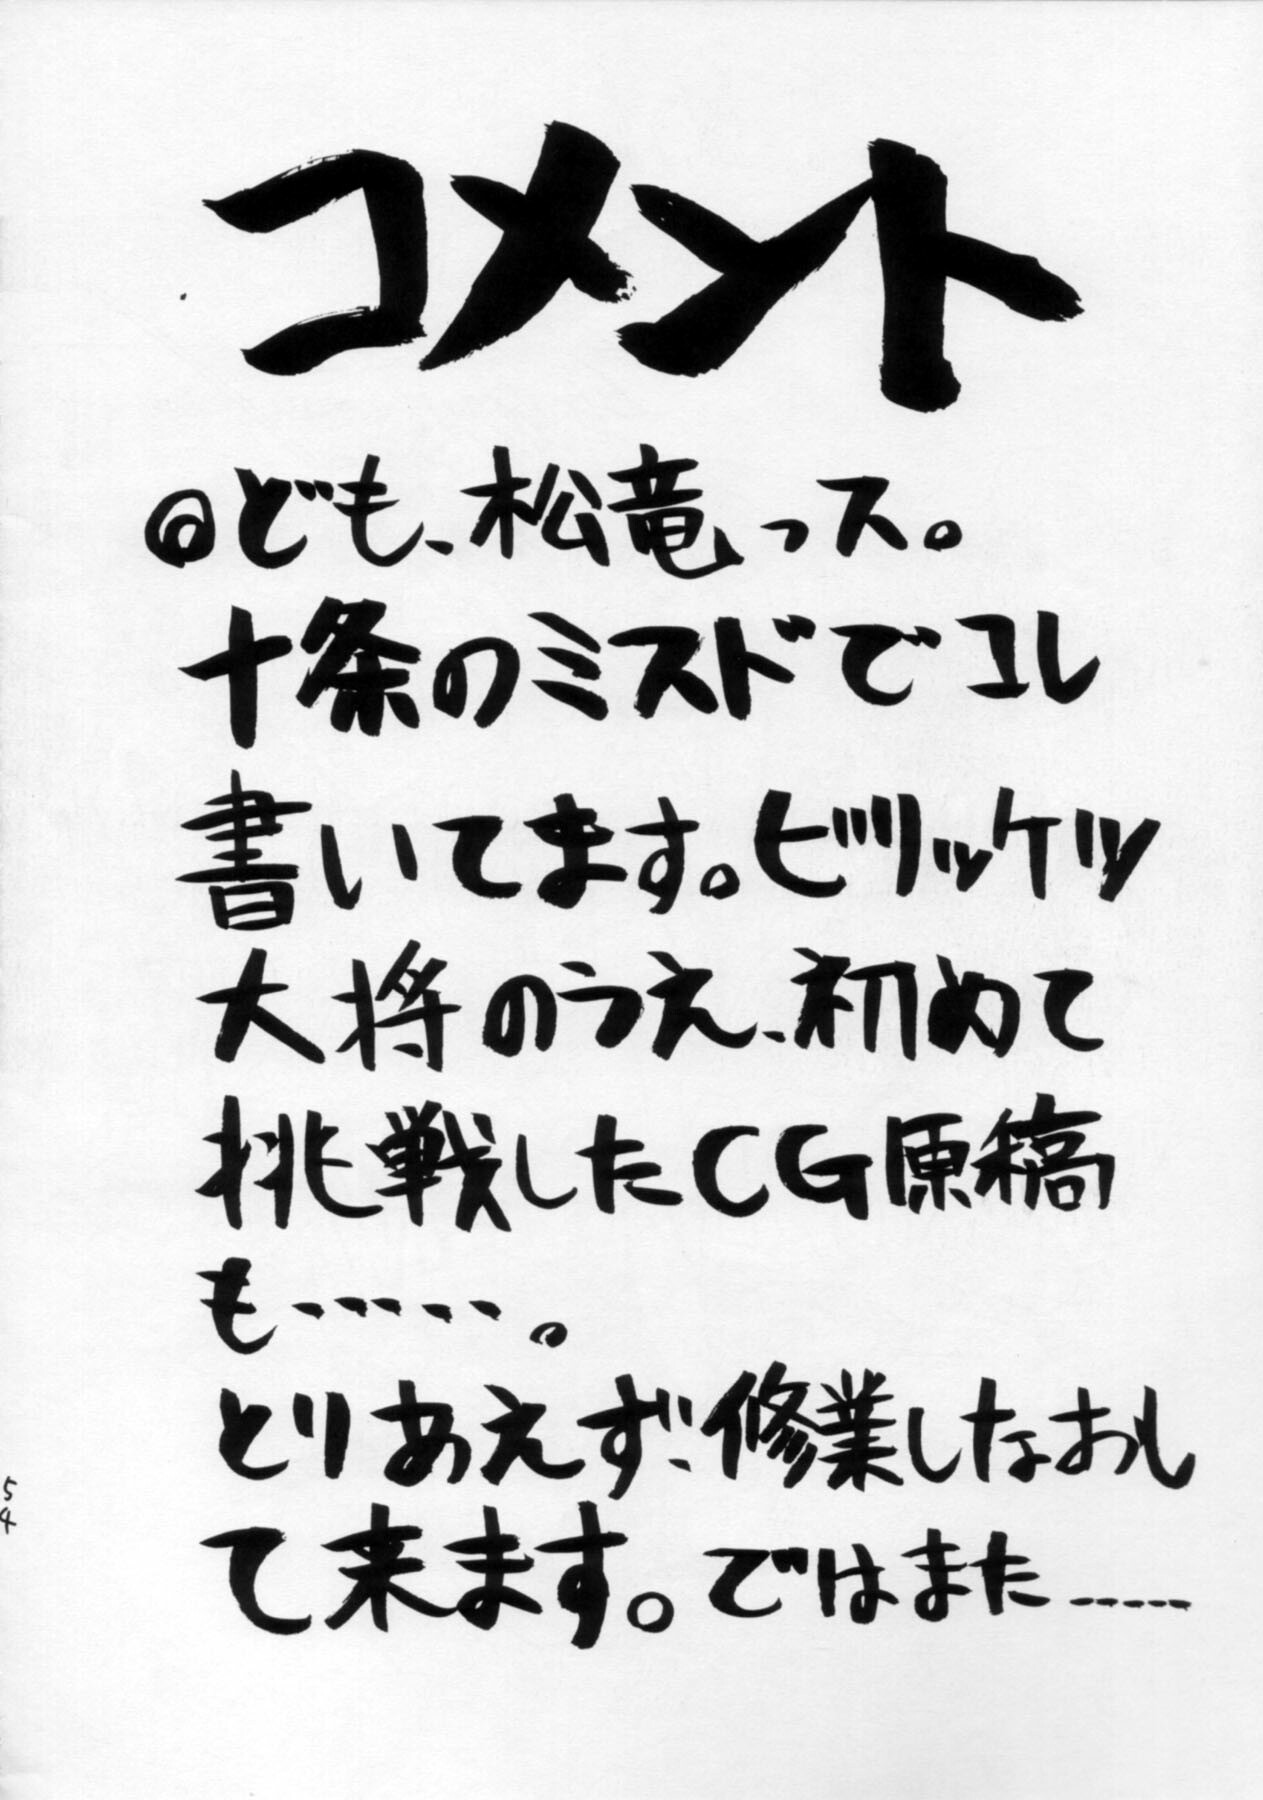 コメント
◎ども、松竜っス。
十条のミスドでコレ
書いてます。ビリッケツ
大将のうえ、初めて
挑戦したCG原稿
も……。
とりあえず、修業しなおし
て来ます。ではまた……
54